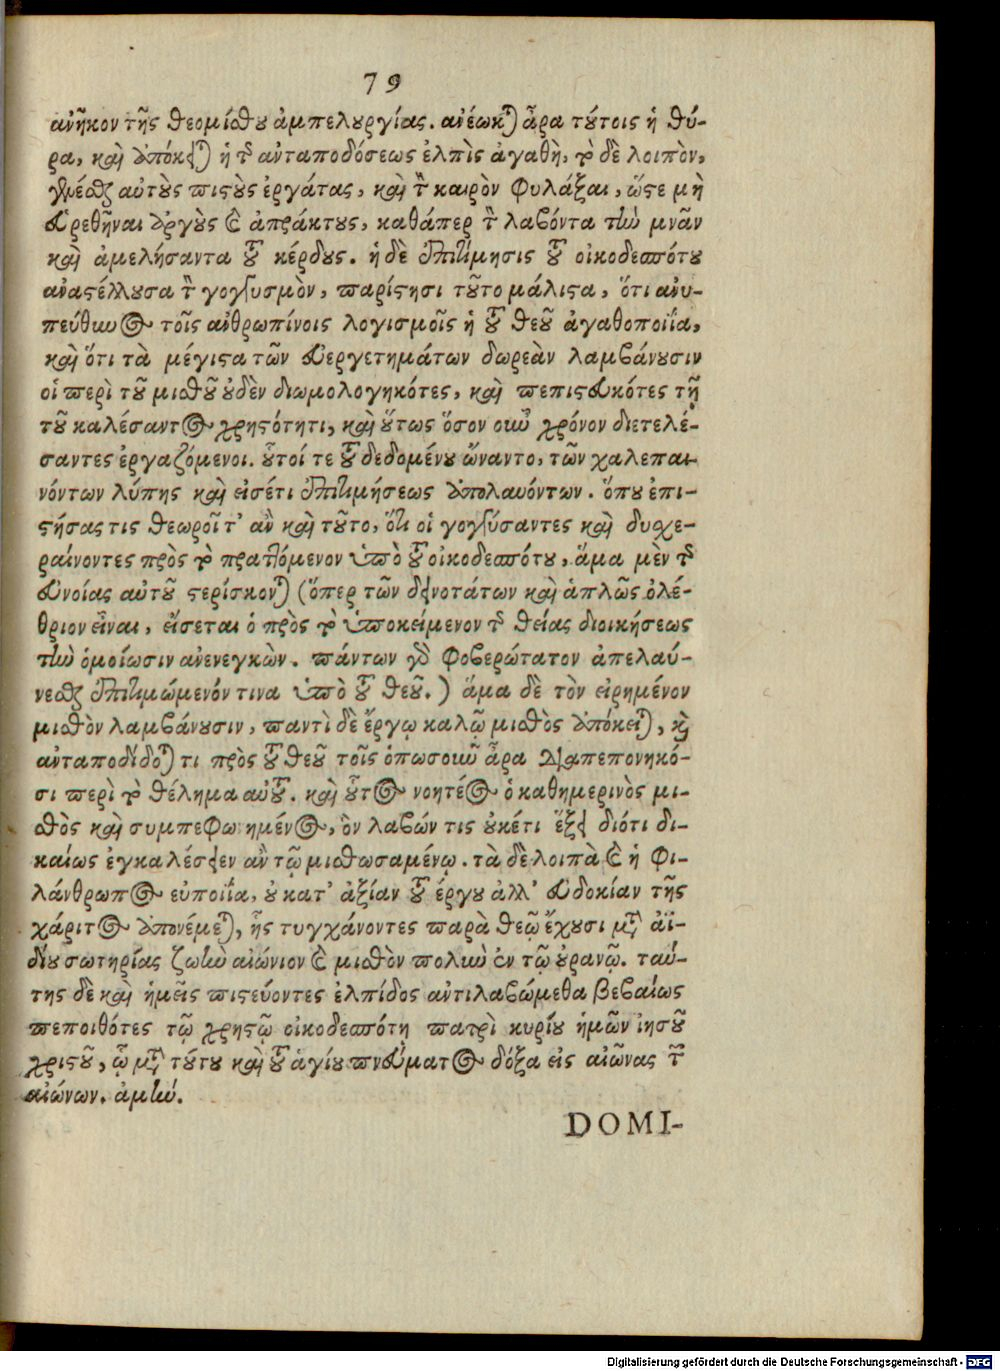 79
ἀνῆκον τῆς θεομίσθου ἀμπελουργίας. ἀνέωκται ἄρα τούτοις ἡ θύ-
ρα, καὶ ὑπόκειται ἡ τῆς ἀνταποδόσεως ἐλπὶς ἀγαθὴ, τὸ δὲ λοιπὸν,
γενέσθαι αὐτοὺς πιστοὺς ἐργάτας, καὶ τὸν καιρὸν φυλάξαι, ὥστε μὴ
εὑρεθῆναι ἀργοὺς καὶ ἀπράκτους, καθάπερ τὸν λαβόντα τὴν μνᾶν
καὶ ἀμελήσαντα τοῦ κέρδους. ἡ δὲ ἐπιτίμησις τοῦ οἰκοδεσπότου
ἀναστέλλουσα τὸν γογγυσμὸν, παρίστησι τοῦτο μάλιστα, ὅτι ἀνυ-
πεύθυνος τοῖς ἀνθρωπίνοις λογισμοῖς ἡ τοῦ θεοῦ ἀγαθοποιΐα,
καὶ ὅτι τὰ μέγιστα τῶν εὐεργετημάτων δωρεὰν λαμβάνουσιν
οἱ περὶ τοῦ μισθοῦ οὐδὲν διωμολογηκότες, καὶ πεπιστευκότες τῇ
τοῦ καλέσαντος χρηστότητι, καὶ οὕτως ὅσον οὖν χρόνον διετελέ-
σαντες ἐργαζόμενοι. οὗτοί τε τοῦ δεδομένου ὤναντο, τῶν χαλεπαι-
νόντων λύπης καὶ εἰσέτι ἐπιτιμήσεως ἀπολαυόντων. ὅπου ἐπι-
στήσας τις θεωροῖ τ' ἂν καὶ τοῦτο, ὅτι οἱ γογγύσαντες καὶ δυσχε-
ραίνοντες πρὸς τὸ πραττόμενον ὑπὸ τοῦ οἰκοδεσπότου, ἅμα μὲν τῆς
εὐνοίας αὐτοῦ στερίσκονται (ὅπερ τῶν δεινοτάτων καὶ ἁπλῶς ὀλέ-
θριον εἶναι, εἴσεται ὁ πρὸς τὸ ὑποκείμενον τῆς θείας διοικήσεως
τὴν ὁμοίωσιν ἀνενεγκὼν. πάντων γὰρ φοβερώτατον ἀπελαύ-
νεσθαι ἐπιτιμώμενόν τινα ὑπὸ τοῦ θεοῦ.) ἅμα δὲ τὸν εἰρημένον
μισθὸν λαμβάνουσιν, παντὶ δὲ ἔργῳ καλῷ μισθὸς ἀπόκειται, καὶ
ἀνταποδίδοται τι πρὸς τοῦ θεοῦ τοῖς ὁπωσοιοῦν ἄρα διαπεπονηκό-
σι περὶ τὸ θέλημα αὐτοῦ. καὶ οὗτος νοητέος ὁ καθημερινὸς μι-
σθὸς καὶ συμπεφωνημένος, ὃν λαβών τις οὐκέτι ἕξει διότι δι-
καίως ἐγκαλέσειεν ἂν τῷ μισθωσαμένῳ. τὰ δὲ λοιπὰ καὶ ἡ φι-
λάνθρωπος εὐποιΐα, οὐ κατ' ἀξίαν τοῦ ἔργου ἀλλ' εὐδοκίαν τῆς
χάριτος ἀπονέμεται, ἧς τυγχάνοντες παρὰ θεῷ ἔχουσι μετὰ ἀϊ-
δίου σωτηρίας ζωὴν αἰώνιον καὶ μισθὸν πολὺν ἐν τῷ οὐρανῷ. ταύ-
της δὲ καὶ ἡμεῖς πιστεύοντες ἐλπίδος ἀντιλαβώμεθα βεβαίως
πεποιθότες τῷ χρηστῷ οἰκοδεσπότῃ πατρὶ κυρίου ἡμῶν ἰησοῦ
χριστοῦ, ᾧ μετὰ τούτου καὶ τοῦ ἁγίου πνεύματος δόξα εἰς αἰῶνας τῶν
αἰώνων. ἀμήν.
DOMI-
Digitalisierung gefördert durch die Deutsche Forschungsgemeinschaft - DFG